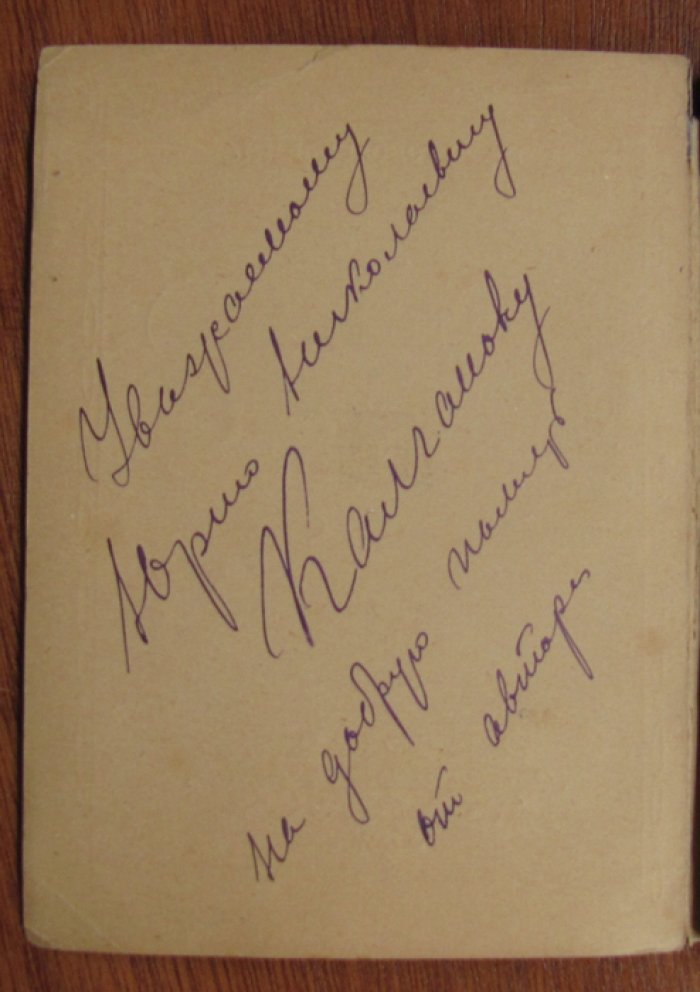 Уважаемому
Юрию Николаевичу
Калганову
на добрую память
от автора